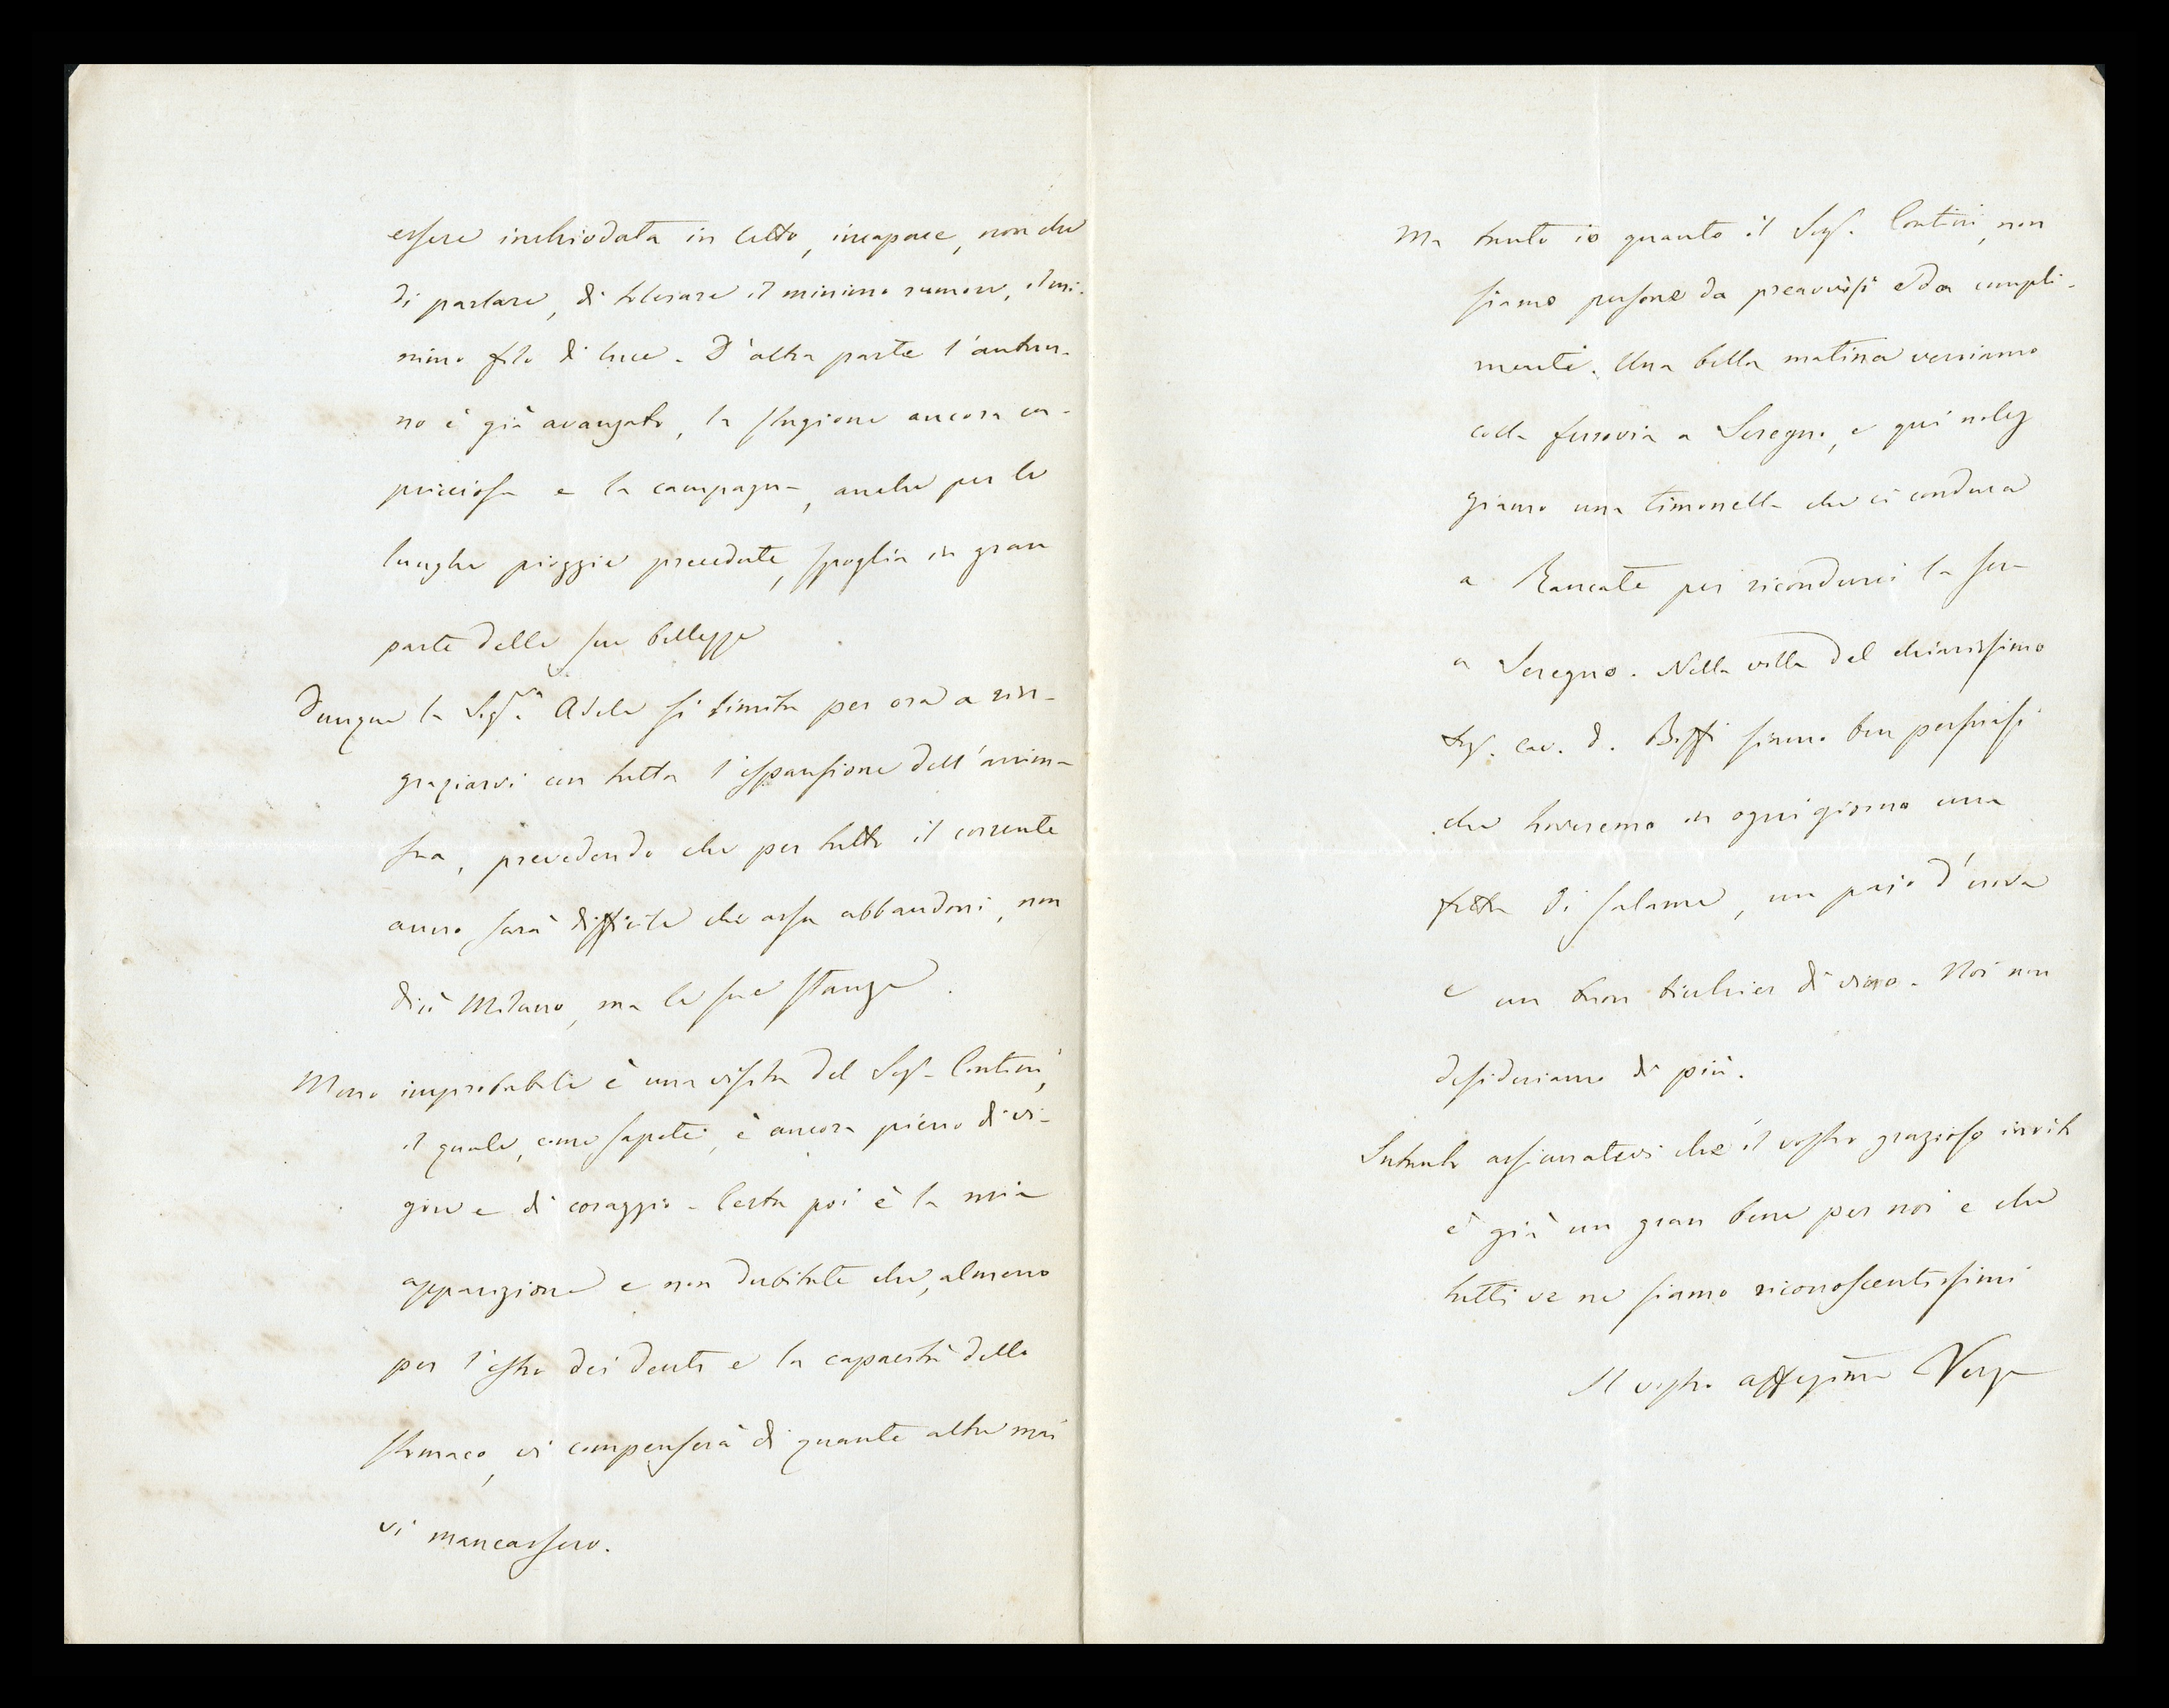 essere inchiodata in letto, incapace, non che
di parlare, di tolerare il minimo rumore, il mi-
nimo filo di luce. D'altra parte l'autun-
no è già avanzato, la stagione ancora ca-
pricciosa e la campagna, anche per le
lunghe pioggie precedute, spoglia in gran
parte delle sue bellezze
Dunque la Sig.ra Adele si limita per ora a rin-
graziarvi con tutta l'espansione dell'anima
sua, prevedendo che per tutto il corrente
anno sarà difficile che essa abbandoni, non
dirò Milano, ma le sue stanze.
Meno improbabile è una visita del Sig. Contini,
il quale, come sapete, è ancora pieno di vi-
gore e di coraggio. Certa poi è la mia
apparizione e non dubitate che, almeno
per l'estro dei denti e la capacità dello
stomaco, vi compenserà di quante altre mai
vi mancassero.
Ma tanto io quanto il Sig. Contini, non
siamo persone da preavvisi e da compli-
menti. Una bella matina verriamo
colla ferrovia a Seregno, e qui noleg
giamo una timonella che ci conduca
a Rancate per ricondurci la sera
a Seregno. Nella villa del chiarissimo
Sig. cav. d. Biffi siamo ben persuasi
che troveremo in ogni giorno una
fetta di salame, un pajo d'uova
e un buon bicchier di vino. Noi non
desideriamo di più.
Intanto assicuratevi che il vostro grazioso invito
è già un gran bene per noi e che
tutti ve ne siamo riconoscentissimi
Il vostro affezmo Verga